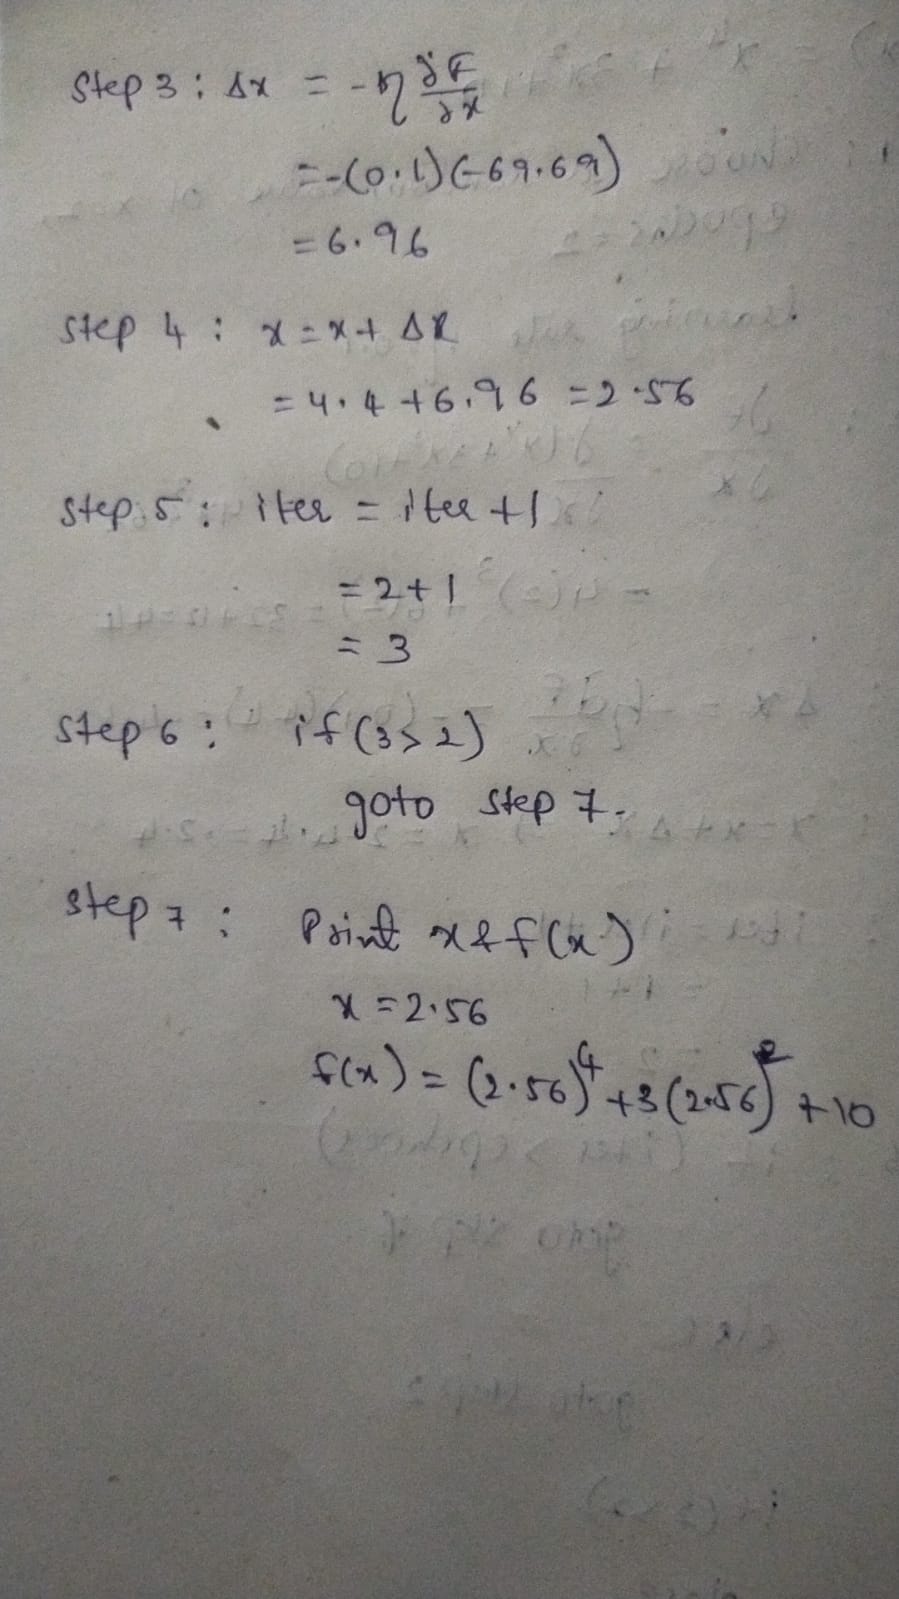 Step 3 : Δx = -η ∂F/∂x
= -(0.1)(-69.69)
= 6.96
Step 4 : x = x + Δx
= 4.4 + 6.96 = 2.56
Step 5 : iter = iter + 1
= 2 + 1
= 3
Step 6 : if (3 > 2)
goto step 7.
Step 7 : Print x & f(x)
x = 2.56
f(x) = (2.56)⁴ + 3(2.56)² + 10